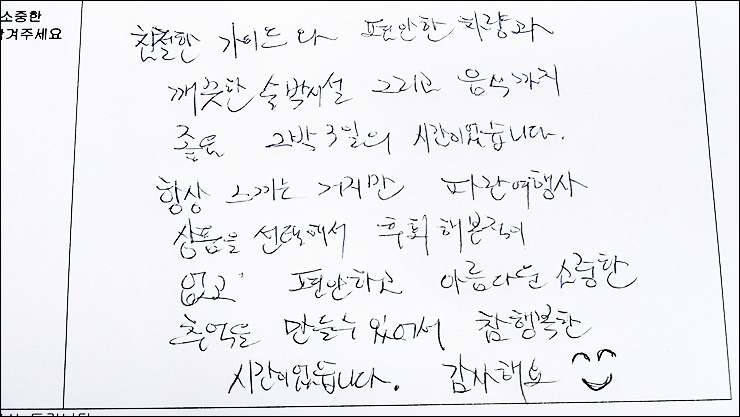 소중한
겨주세요
친절한 가이드와 편안한 차량과
깨끗한 숙박시설 그리고 음식까지
좋은 2박 3일의 시간이었습니다.
항상 느끼는 거지만 파란여행사
상품을 선택해서 후회해본적이
없고 편안하고 아름다운 소중한
추억을 만들수 있어서 참 행복한
시간이었습니다. 감사해요